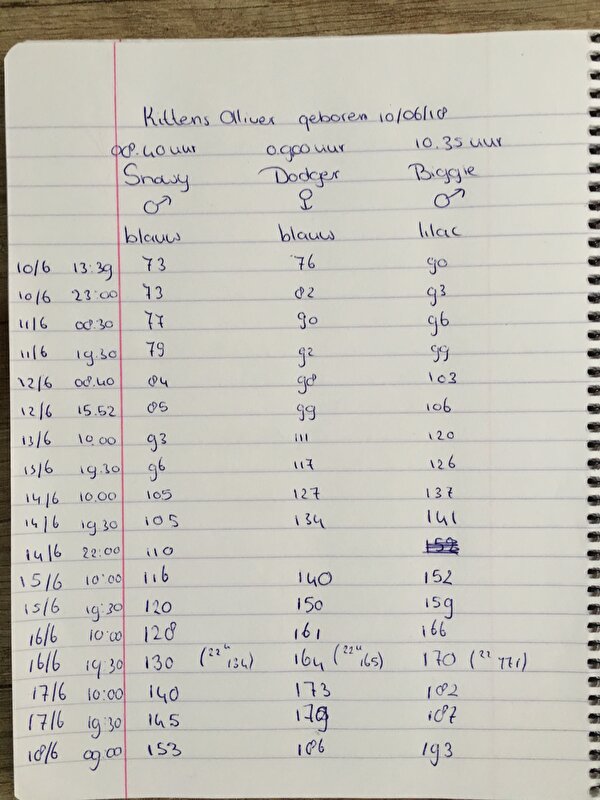 Kittens Olliver geboren 10/06/18
08.40 uur 0.900 uur 10.35 uur
Snowy Dodger Biggie
♂ ♀ ♂
blauw blauw lilac
10/6 13:39 73 76 90
10/6 23:00 73 82 93
11/6 08.30 77 90 96
11/6 19.30 79 92 99
12/6 08.40 84 98 103
12/6 15.52 85 99 106
13/6 10.00 93 111 120
13/6 19.30 96 117 126
14/6 10.00 105 127 137
14/6 19:30 105 134 141
14/6 22:00 110
15/6 10:00 116 140 152
15/6 19:30 120 150 159
16/6 10:00 128 161 166
16/6 19:30 130 (22u 134) 164 (22u 165) 170 (22 171)
17/6 10:00 140 173 182
17/6 19:30 145 179 187
18/6 09:00 153 186 193